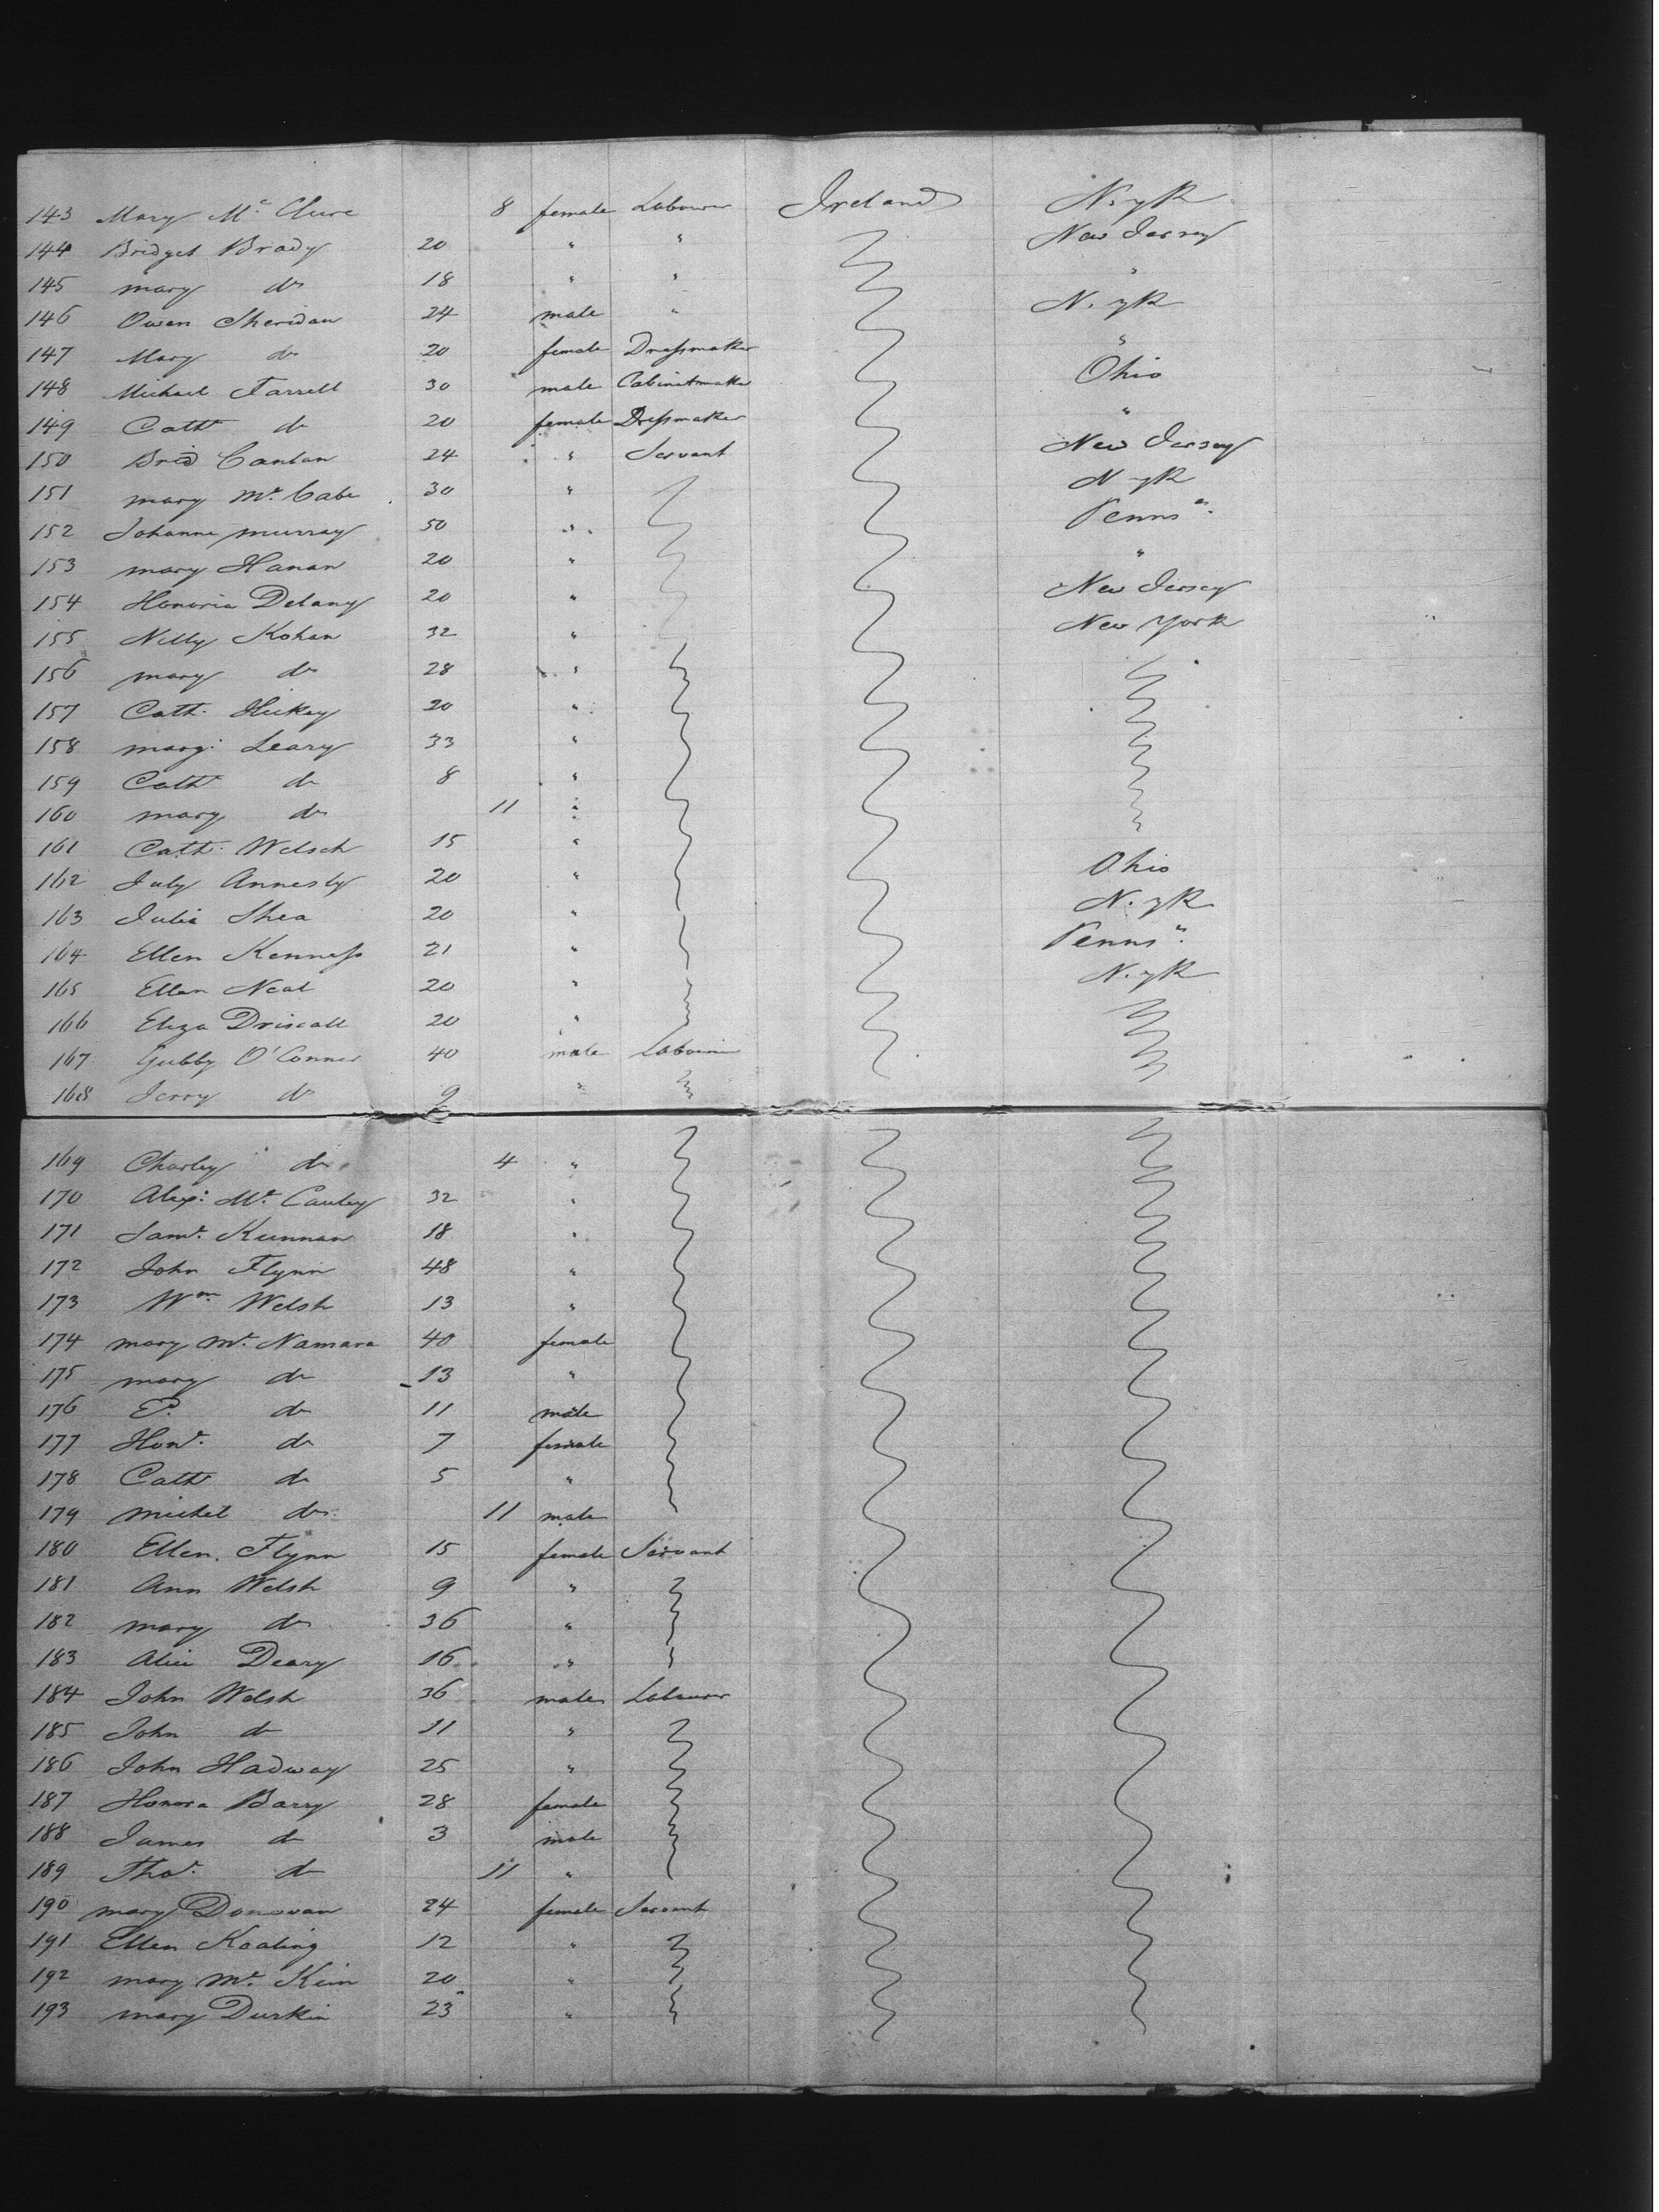 143 Mary Mc Clure 8 female Labourer Ireland N. yk
144 Bridget Brady 20 " " New Jersey
145 mary do 18 " " "
146 Owen Sheridan 24 male " N. yk
147 Mary do 20 female Dressmaker "
148 Michael Farrell 30 male Cabinetmaker Ohio
149 Cath do 20 female Dressmaker "
150 Brid Canlan 24 " Servant New Jersey
151 mary Mc Cabe 30 " N yk
152 Johanna murray 50 " Penns a.
153 mary Hanan 20 " "
154 Honoria Delany 20 " New Jersey
155 Nelly Kohan 32 " New York
156 mary do 28 "
157 Cath. Hickey 20 "
158 marg: Leary 33 "
159 Cath do 8 "
160 mary do 11 "
161 Cath. Welsch 15 "
162 July Annesly 20 " Ohio
163 Julia Shea 20 " N. yk
164 Ellen Kenness 21 " Penns a.
165 Ellen Neal 20 " N. yk
166 Eliza Driscall 20 "
167 Gubby O'Conner 40 male Labourer
168 Jerry do 9 "
169 Charley do 4 "
170 Alex: Mc Cauley 32 "
171 Saml. Kunnan 18 "
172 John Flynn 48 "
173 Wm Welsh 13 "
174 mary Mc Namara 40 female
175 mary do 13 "
176 P. do 11 male
177 Honr. do 7 female
178 Cath do 5 "
179 michel do 11 male
180 Ellen Flynn 15 female Servant
181 Ann Welsh 9 "
182 mary do 36 "
183 Alice Deary 16 "
184 John Welsh 36 male Labourer
185 John do 11 "
186 John Hadway 25 "
187 Honora Barry 28 female
188 James do 3 male
189 Thos. do 11 "
190 mary Donovan 24 female Servant
191 Ellen Koating 12 "
192 mary Mc Kim 20 "
193 mary Durkin 23 "